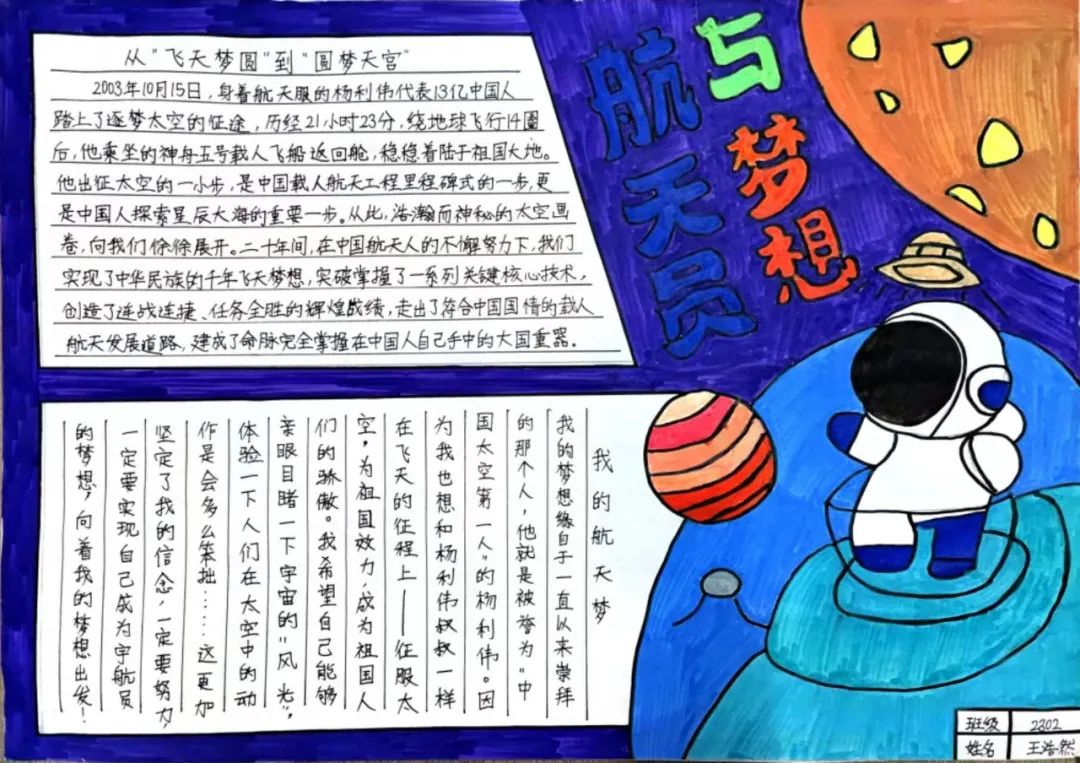 航天员
与梦想
从"飞天梦圆"到"圆梦天宫"
2003年10月15日,身着航天服的杨利伟代表13亿中国人
踏上了逐梦太空的征途,历经21小时23分,绕地球飞行14圈
后,他乘坐的神舟五号载人飞船返回舱,稳稳着陆于祖国大地。
他出征太空的一小步,是中国载人航天工程里程碑式的一步,更
是中国人探索星辰大海的重要一步。从此,浩瀚而神秘的太空画
卷,向我们徐徐展开。二十年间,在中国航天人的不懈努力下,我们
实现了中华民族的千年飞天梦想,突破掌握了一系列关键核心技术,
创造了连战连捷、任务全胜的辉煌成绩,走出了符合中国国情的载人
航天发展道路,建成了命脉完全掌握在中国人自己手中的大国重器。
我的航天梦
我的梦想缘自于一直以来崇拜
的那个人,他就是被誉为"中
国太空第一人"的杨利伟。因
为我也想和杨利伟叔叔一样
在飞天的征程上——征服太
空,为祖国效力,成为祖国人
们的骄傲。我希望自己能够
亲眼目睹一下宇宙的"风光",
体验一下人们在太空中的动
作是会多么笨拙……这更加
坚定了我的信念,一定要努力,
一定要实现自己成为宇航员
的梦想,向着我的梦想出发!
班级 2302
姓名 王浩然